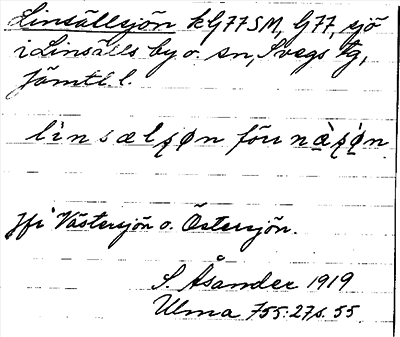 Linsällsjön kG77SM, G77, sjö
i Linsälls by o. sn, Svegs tg,
Jämtl. l.
lìnsælʂøn förr næ̀ʂø̀n
Jfr Västersjön o. Östersjön.
S Åsander 1919
Ulma 755:27 s. 55